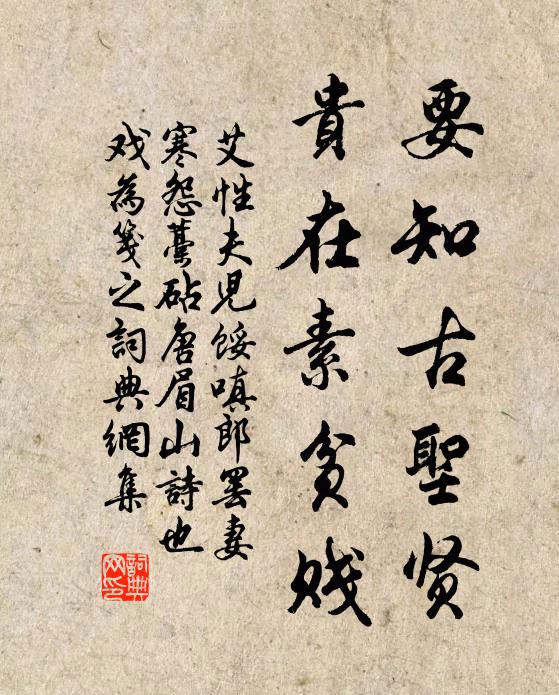 要知古聖贤
貴在素貧贱
艾性夫児餒嗔郎罢妻
寒怨藁砧唐眉山詩也
戏為笺之詞典網集
詞典网印